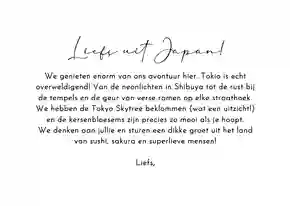 Liefs uit Japan!
We genieten enorm van ons avontuur hier. Tokio is echt
overweldigend! Van de neonlichten in Shibuya tot de rust bij
de tempels en de geur van verse ramen op elke straathoek.
We hebben de Tokyo Skytree beklommen (wat een uitzicht!)
en de kersenbloesems zijn precies zo mooi als je hoopt.
We denken aan jullie en sturen een dikke groet uit het land
van sushi, sakura en superlieve mensen!
Liefs,